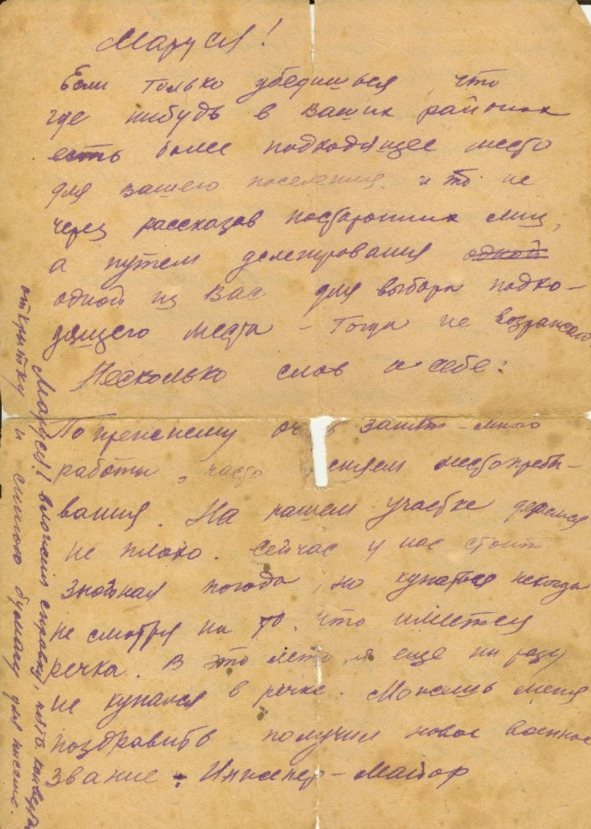 Маруся!
Если только убедишься, что
где нибудь в ваших районах
есть более подходящее место
для вашего поселения и то не
через рассказов посторонних лиц,
а путем делегирования одной
одной из Вас для выбора подхо-
дящего места - тогда не возражаю.
Несколько слов о себе:
По прежнему занят - много
работы, часто меняем местопребы-
вания. На нашем участке деремся
не плохо. Сейчас у нас стоит
знойная погода, но купаться некогда
не смотря на то, что имеется
речка. В это лето я еще ни разу
не купался в речке. Можешь меня
поздравить получил новое военное
звание. Инженер-Майор
Маруся! вложил справку, пять конверт
открытку и немного бумагу для письма.